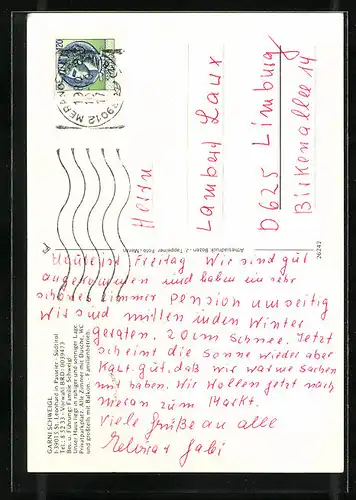 GARNI SCHWEIGL
I-39015 St. Leonhard in Passeier - Südtirol
Bes. u. Führung: Familie Schweigl
Unser Haus liegt in ruhiger und sonniger Lage.
Privatparkplatz. Alle Zimmer mit Dusche, WC
und großteils mit Balkon. - Familienbetrieb
Heute ist Freitag Wir sind gut
angekommen und haben ein sehr
schönes Zimmer Pension umseitig
Wir sind mitten in den Winter
geraten. 20 cm Schnee. Jetzt
scheint die Sonne wieder aber
Kalt. gut, daß wir warme Sachen
mit haben. Wir wollen jetzt nach
Meran zum Markt.
Viele Grüße an alle
Gabi
Herrn
Lambert Laux
D 625 Limburg
Birkenallee 14
39012 MERANO
120
Tappeiner Foto - Meran
26242